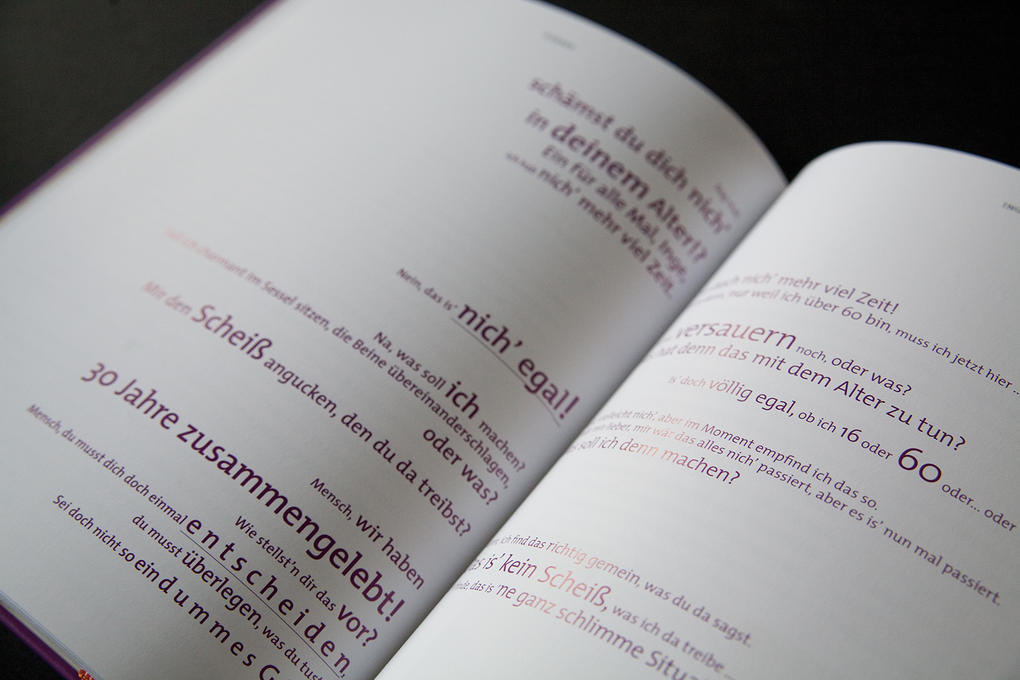 schämst du dich nich'
in deinem Alter!?
Ein für alle Mal, Inge,
ich hab nich' mehr viel Zeit.
Nein, das is' 'nich' egal!
Na, was soll ich machen?
charmant im Sessel sitzen, die Beine übereinanderschlagen,
oder was?
Mit den Scheiß angucken, den du da treibst?
Mensch, wir haben
30 Jahre zusammengelebt!
Wie stellst'n dir das vor?
Mensch, du musst dich doch einmal entscheiden,
du musst überlegen, was du tust
Sei doch nicht so ein dummes G
nich' mehr viel Zeit!
nur weil ich über 60 bin, muss ich jetzt hier ...
versauern noch, oder was?
hat denn das mit dem Alter zu tun?
Is' doch völlig egal, ob ich 16 oder 60 oder... oder
nich', aber im Moment empfind ich das so.
lieber, mir wär das alles nich' passiert, aber es is' nun mal passiert.
soll ich denn machen?
ich find das richtig gemein, was du da sagst.
is' kein Scheiß, was ich da treibe
das is 'ne ganz schlimme Situa